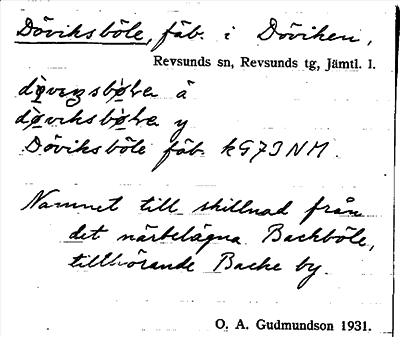 Döviksböle, fäb. i Döviken,
Revsunds sn, Revsunds tg, Jämtl. l.
ä
y
Döviksböle fäb kG73NM.
Namnet till skillnad från
det närbelägna Backböle,
tillhörande Backe by.
O. A. Gudmundson 1931.